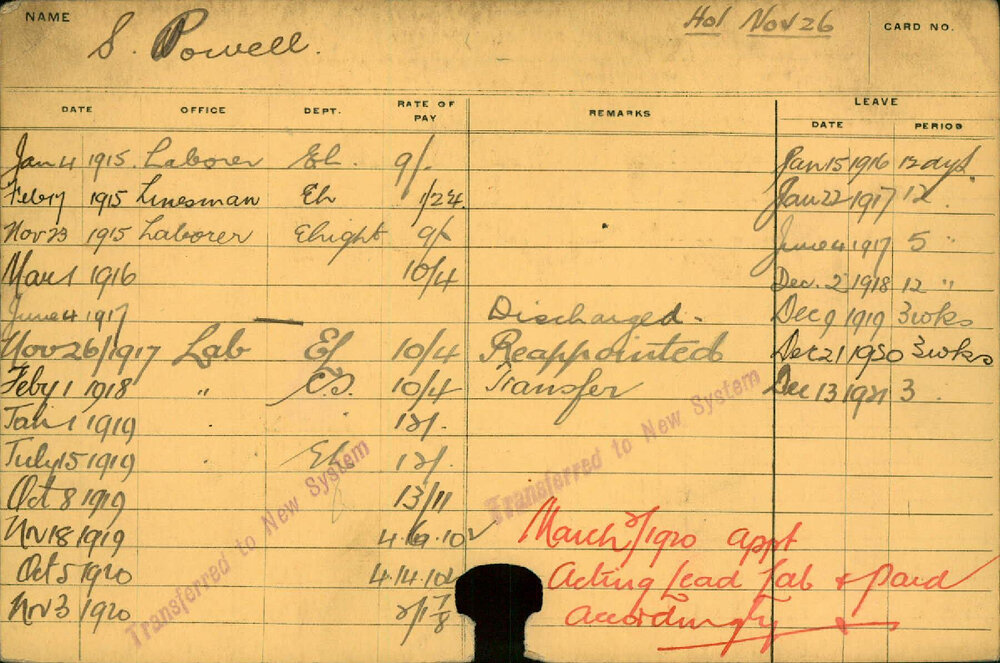 NAME S. Powell. Hol Nov 26 CARD NO.
DATE OFFICE DEPT. RATE OF PAY REMARKS LEAVE
DATE PERIOD
Jan 4 1915 Laborer El. 9/- Jan 15 1916 12 days.
Feb 17 1915 Linesman El Jan 22 1917 12 "
Nov 23 1915 Laborer Elright 9/- June 4 1917 5 "
Mar 1 1916 10/4 Dec. 2 1918 12 "
June 4 1917 Discharged. Dec 9 1919 3 wks
Nov 26/1917 Lab El 10/4 Reappointed Dec 21 1920 3 wks
Feby 1 1918 " 10/4 Transfer Dec 13 1921 3
Jan 1 1919 " " 12/.
July 15 1919 " El. 12/.
Oct 8 1919 13/11
Nov 18 1919
Oct 5 1920
Nov 3 1920
Transferred to New System
Transferred to New System
March 1920 appt
Acting Lead Lab & paid
Accordingly